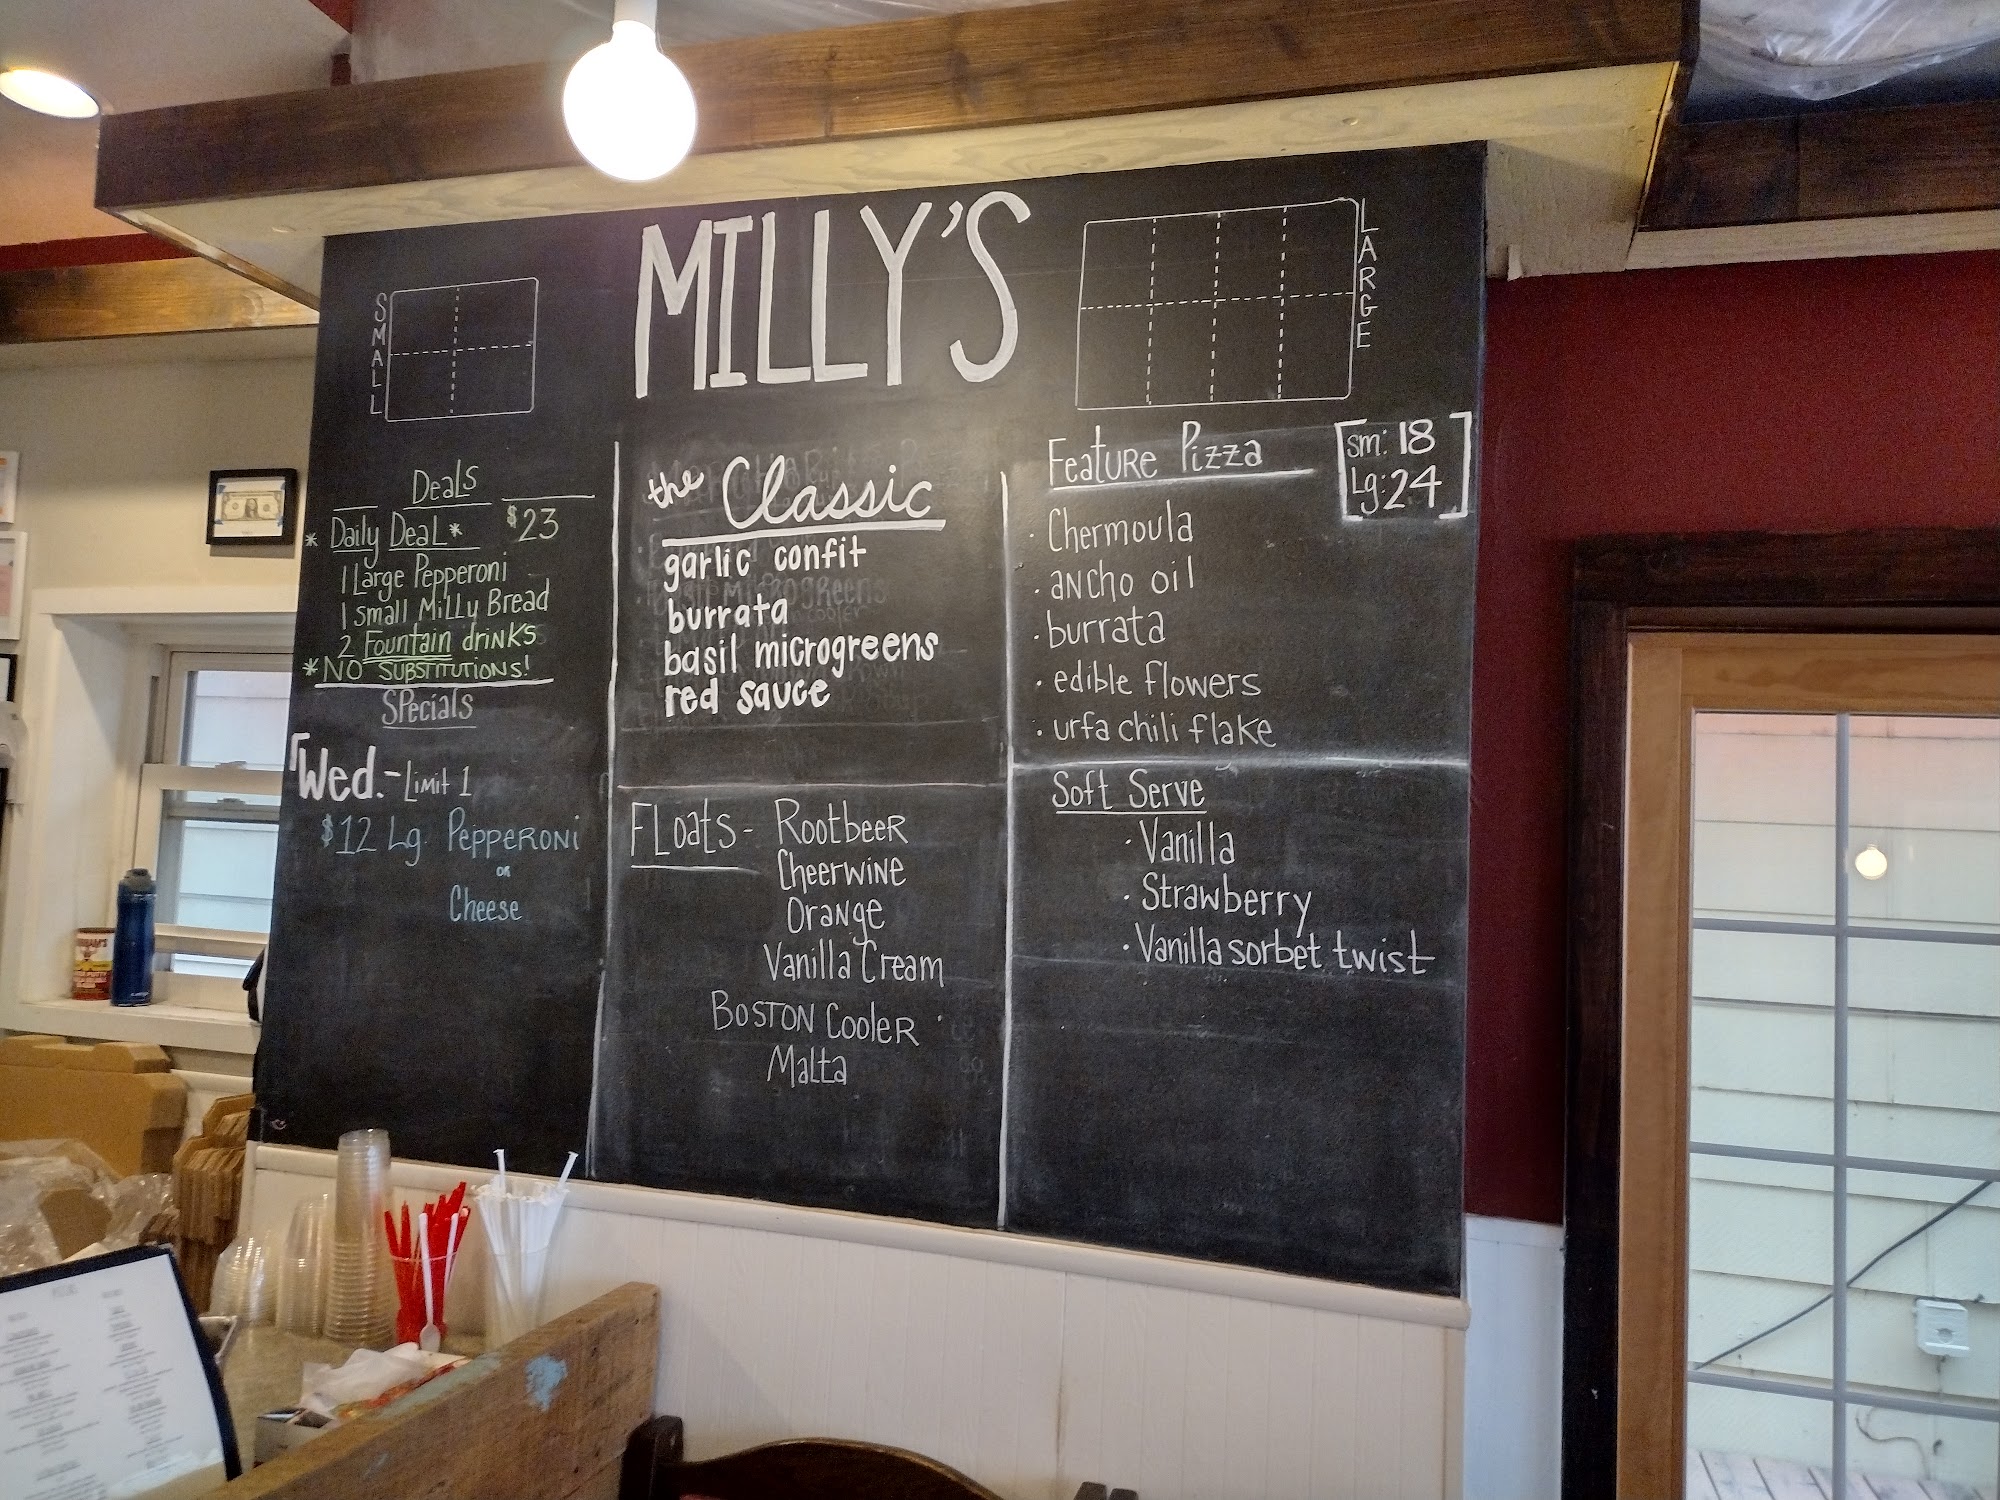 MILLY'S
SMALL
LARGE
DEALS
* Daily DEAL * $23
1 Large Pepperoni
1 Small MiLLy Bread
2 Fountain drinks
* NO SUBSTITUTIONS!
SPecials
Wed. - LIMIT 1
$12 Lg. PEPPERONI
OR
Cheese
the Classic
garlic confit
burrata
basil microgreens
red sauce
FLOATS - ROOTBEER
CHEERWINE
ORANGE
Vanilla Cream
BOSTON COOLER
Malta
FEATURE PIZZA
sm: 18
Lg: 24
· Chermoula
· ancho oil
· burrata
· edible flowers
· urfa chili flake
SOFT SERVE
· Vanilla
· Strawberry
· Vanilla sorbet twist